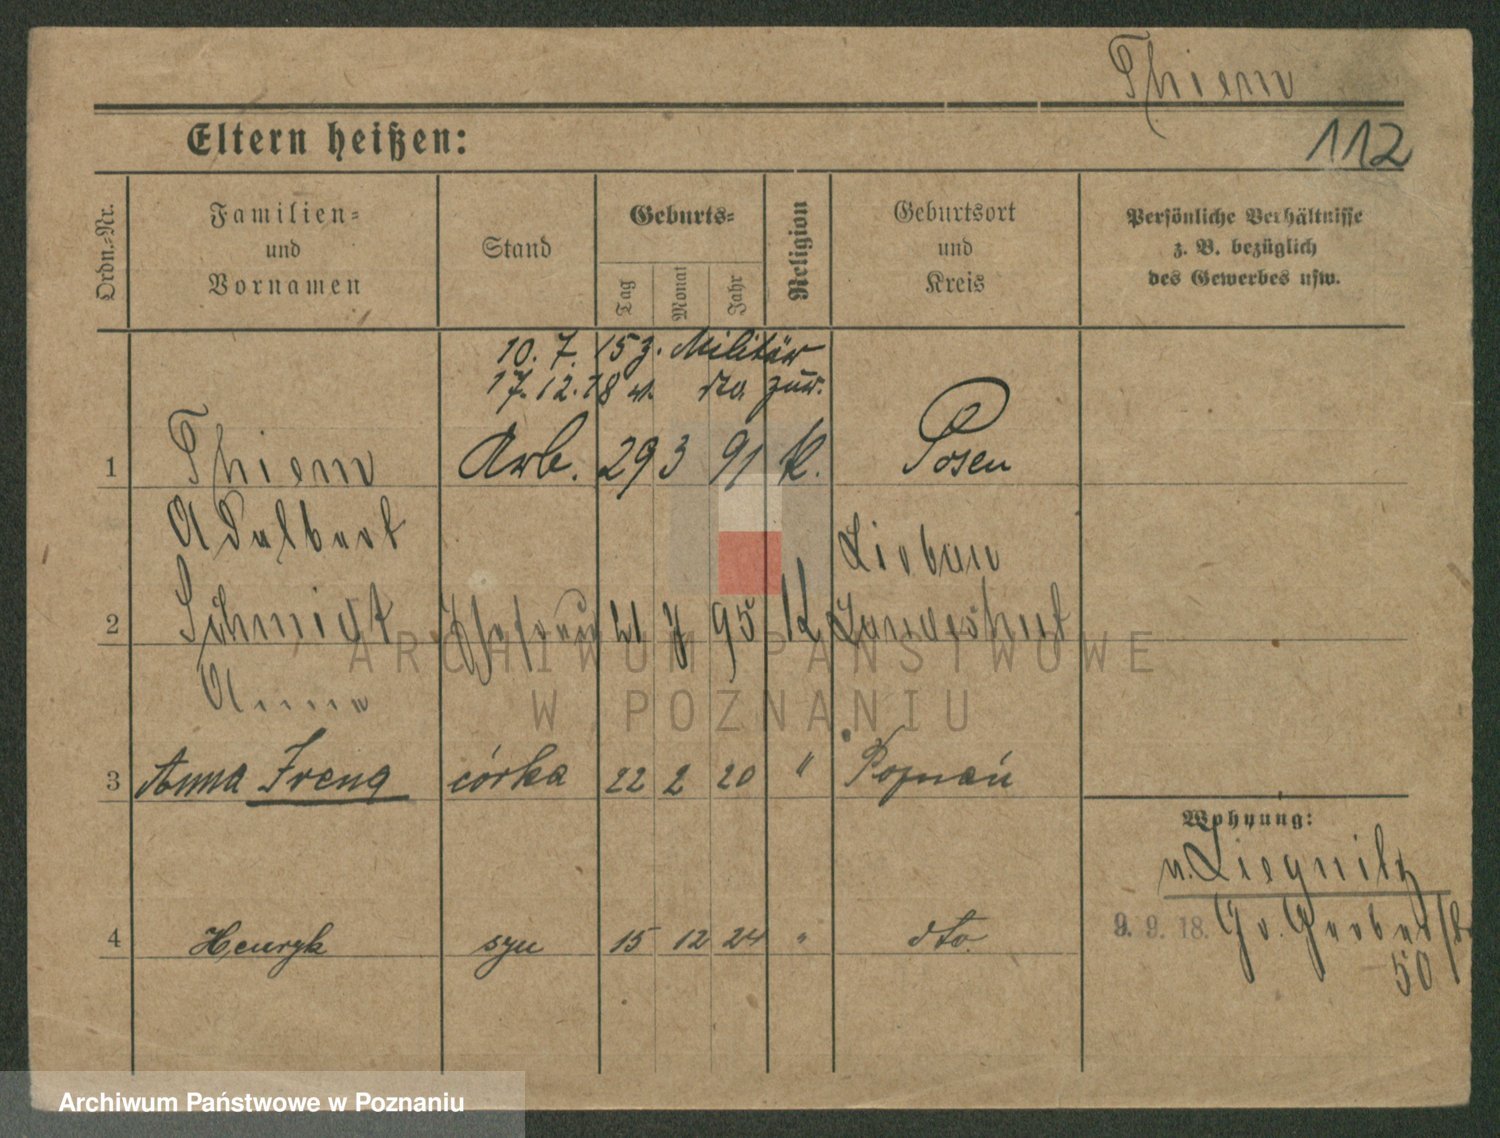 Thiem
112
Eltern heißen:
Ordn.-Nr.
Familien-
und
Vornamen
Stand
Geburts-
Tag
Monat
Jahr
Religion
Geburtsort
und
Kreis
Persönliche Verhältnisse
z. B. bezüglich
des Gewerbes usw.
10. 7. 15 z. Militär
17. 12. 18 v. zur.
1 Thiem Arb. 29 3 91 K. Posen
Adalbert Liebau
2 Schmidt Ehefrau 21 7 95 K Landeshut
Anna
3 Anna Irena córka 22 2 20 " Poznań
Wohnung:
v. Liegnitz
9. 9. 18. Gr. Gerberstr
50
4 Henryk syn 15 12 24 " dto.
ARCHIWUM PAŃSTWOWE
W POZNANIU
Archiwum Państwowe w Poznaniu